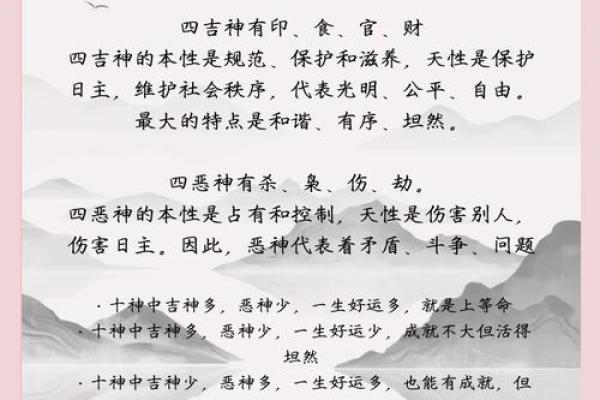 四吉神有印、食、官、财
四吉神的本性是规范、保护和滋养，天性是保护
日主，维护社会秩序，代表光明、公平、自由。
最大的特点是和谐、有序、坦然。
四恶神有杀、枭、伤、劫。
四恶神的本性是占有和控制，天性是伤害别人，
伤害日主。因此，恶神代表着矛盾、斗争、问题
·十神中吉神多，恶神少，一生好运多，就是上等命
·十神中吉神多，恶神少，一生好运少，成就不大但活得
坦然
·十神中吉神少，恶神多，一生好运多，也能有成就，但